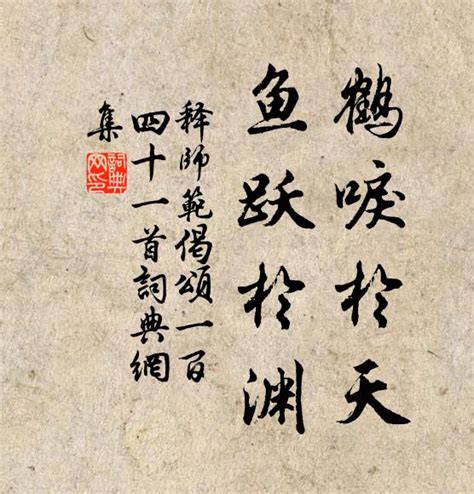 鶴唳於天
鱼跃於渊
释師範偈頌一百
四十一首詞典網
集
詞典
网印